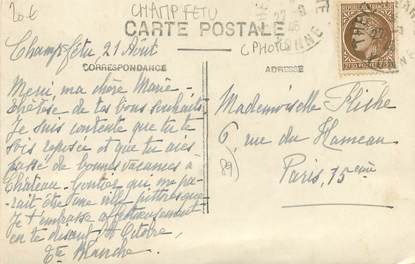 20€
CHAMPFETU
CARTE POSTALE
(PHOTO)
CORRESPONDANCE
ADRESSE
Champfêtu 21 Août
Merci, ma chère Marie-
Thérèse de tes bons souhaits.
Je suis contente que tu te
sois reposée et que tu aies
passé de bonnes vacances à
Château-Gontier, qui me pa-
raît être une ville pittoresque.
Je t'embrasse affectueusement
en te disant
Tte Blanche.
Mademoiselle Fliche
6, rue du Hameau
Paris, 15ème
89)